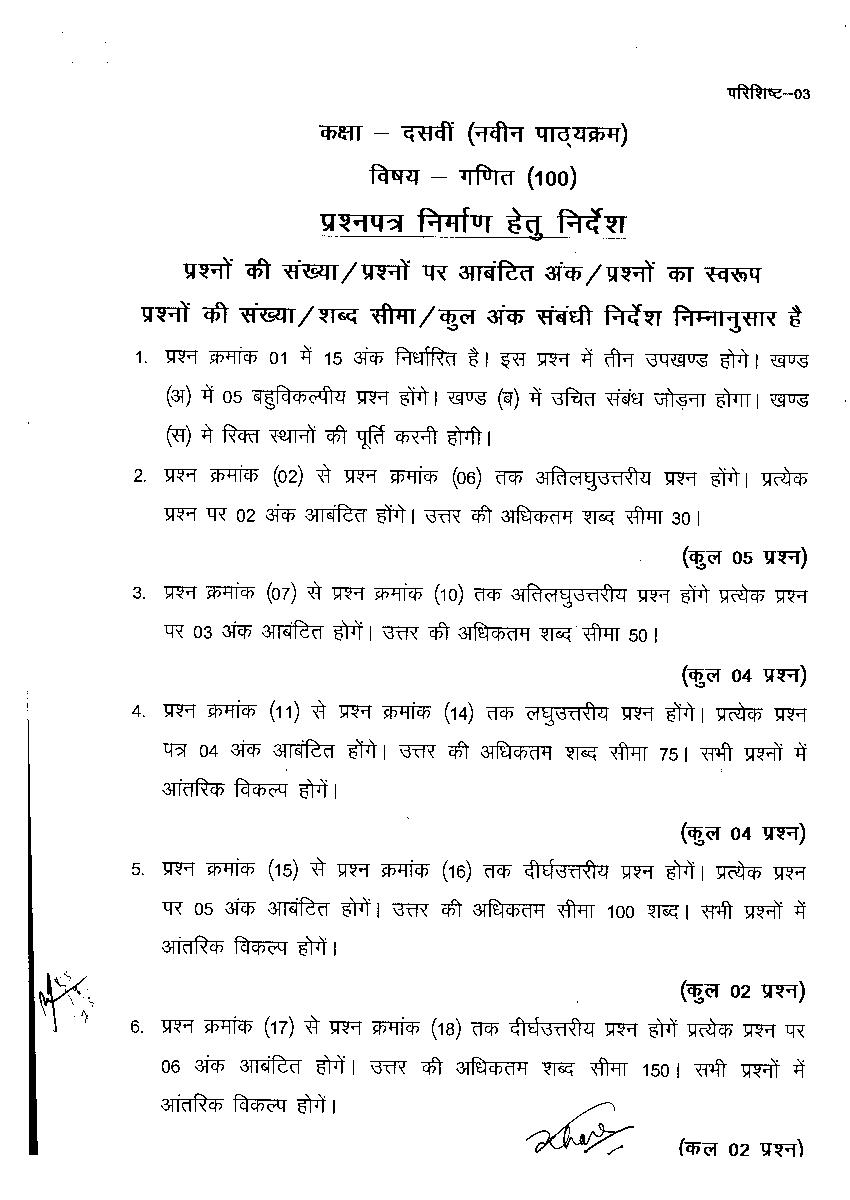 परिशिष्ट–03
कक्षा – दसवीं (नवीन पाठ्यक्रम)
विषय – गणित (100)
प्रश्नपत्र निर्माण हेतु निर्देश
प्रश्नों की संख्या/प्रश्नों पर आबंटित अंक/प्रश्नों का स्वरूप
प्रश्नों की संख्या/शब्द सीमा/कुल अंक संबंधी निर्देश निम्नानुसार है
1. प्रश्न क्रमांक 01 में 15 अंक निर्धारित है। इस प्रश्न में तीन उपखण्ड होगे। खण्ड
(अ) में 05 बहुविकल्पीय प्रश्न होंगे। खण्ड (ब) में उचित संबंध जोड़ना होगा। खण्ड
(स) मे रिक्त स्थानों की पूर्ति करनी होगी।
2. प्रश्न क्रमांक (02) से प्रश्न क्रमांक (06) तक अतिलघुउत्तरीय प्रश्न होंगे। प्रत्येक
प्रश्न पर 02 अंक आबंटित होंगे। उत्तर की अधिकतम शब्द सीमा 30।
(कुल 05 प्रश्न)
3. प्रश्न क्रमांक (07) से प्रश्न क्रमांक (10) तक अतिलघुउत्तरीय प्रश्न होंगे प्रत्येक प्रश्न
पर 03 अंक आबंटित होगें। उत्तर की अधिकतम शब्द सीमा 50।
(कुल 04 प्रश्न)
4. प्रश्न क्रमांक (11) से प्रश्न क्रमांक (14) तक लघुउत्तरीय प्रश्न होंगे। प्रत्येक प्रश्न
पत्र 04 अंक आबंटित होंगे। उत्तर की अधिकतम शब्द सीमा 75। सभी प्रश्नों में
आंतरिक विकल्प होगें।
(कुल 04 प्रश्न)
5. प्रश्न क्रमांक (15) से प्रश्न क्रमांक (16) तक दीर्घउत्तरीय प्रश्न होगें। प्रत्येक प्रश्न
पर 05 अंक आबंटित होगें। उत्तर की अधिकतम सीमा 100 शब्द। सभी प्रश्नों में
आंतरिक विकल्प होगें।
(कुल 02 प्रश्न)
6. प्रश्न क्रमांक (17) से प्रश्न क्रमांक (18) तक दीर्घउत्तरीय प्रश्न होगें प्रत्येक प्रश्न पर
06 अंक आबंटित होगें। उत्तर की अधिकतम शब्द सीमा 150। सभी प्रश्नों में
आंतरिक विकल्प होगें।
(कुल 02 प्रश्न)